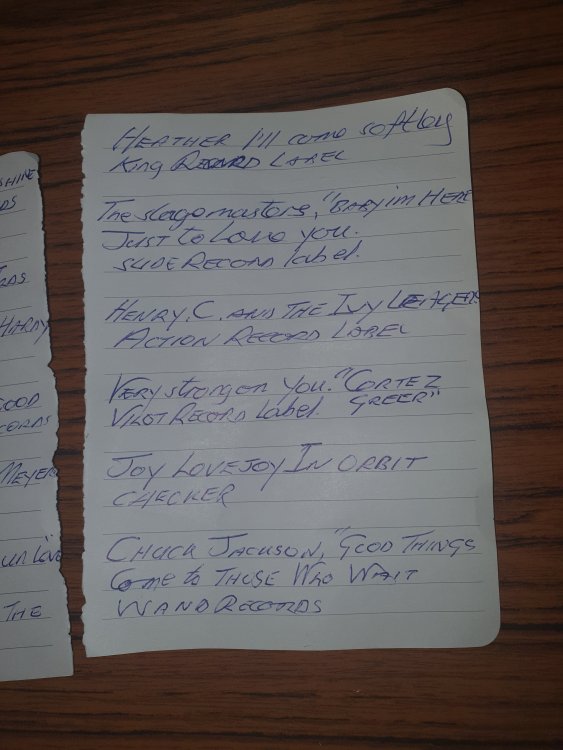 HEATHER I'll come softley
King RECORD LABEL
The stagemasters, "BABY im HERE
Just to Love you.
SLIDE RECORD label.
HENRY. C. AND THE IVY LEAGERS
ACTION RECORD LABEL
VERY strong on you. "CORTEZ
VILOT RECORD label GREER"
JOY LOVEJOY IN ORBIT
CHECKER
CHUCK JACKSON, "GOOD THINGS
Come to THOSE WHO WAIT
WAND RECORDS
SHINE
DS
RDS
HARDY
GOOD
CORDS
MEYER
un Love
THE